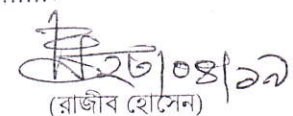 ২৮|০৪|১৯
(রাজীব হোসেন)